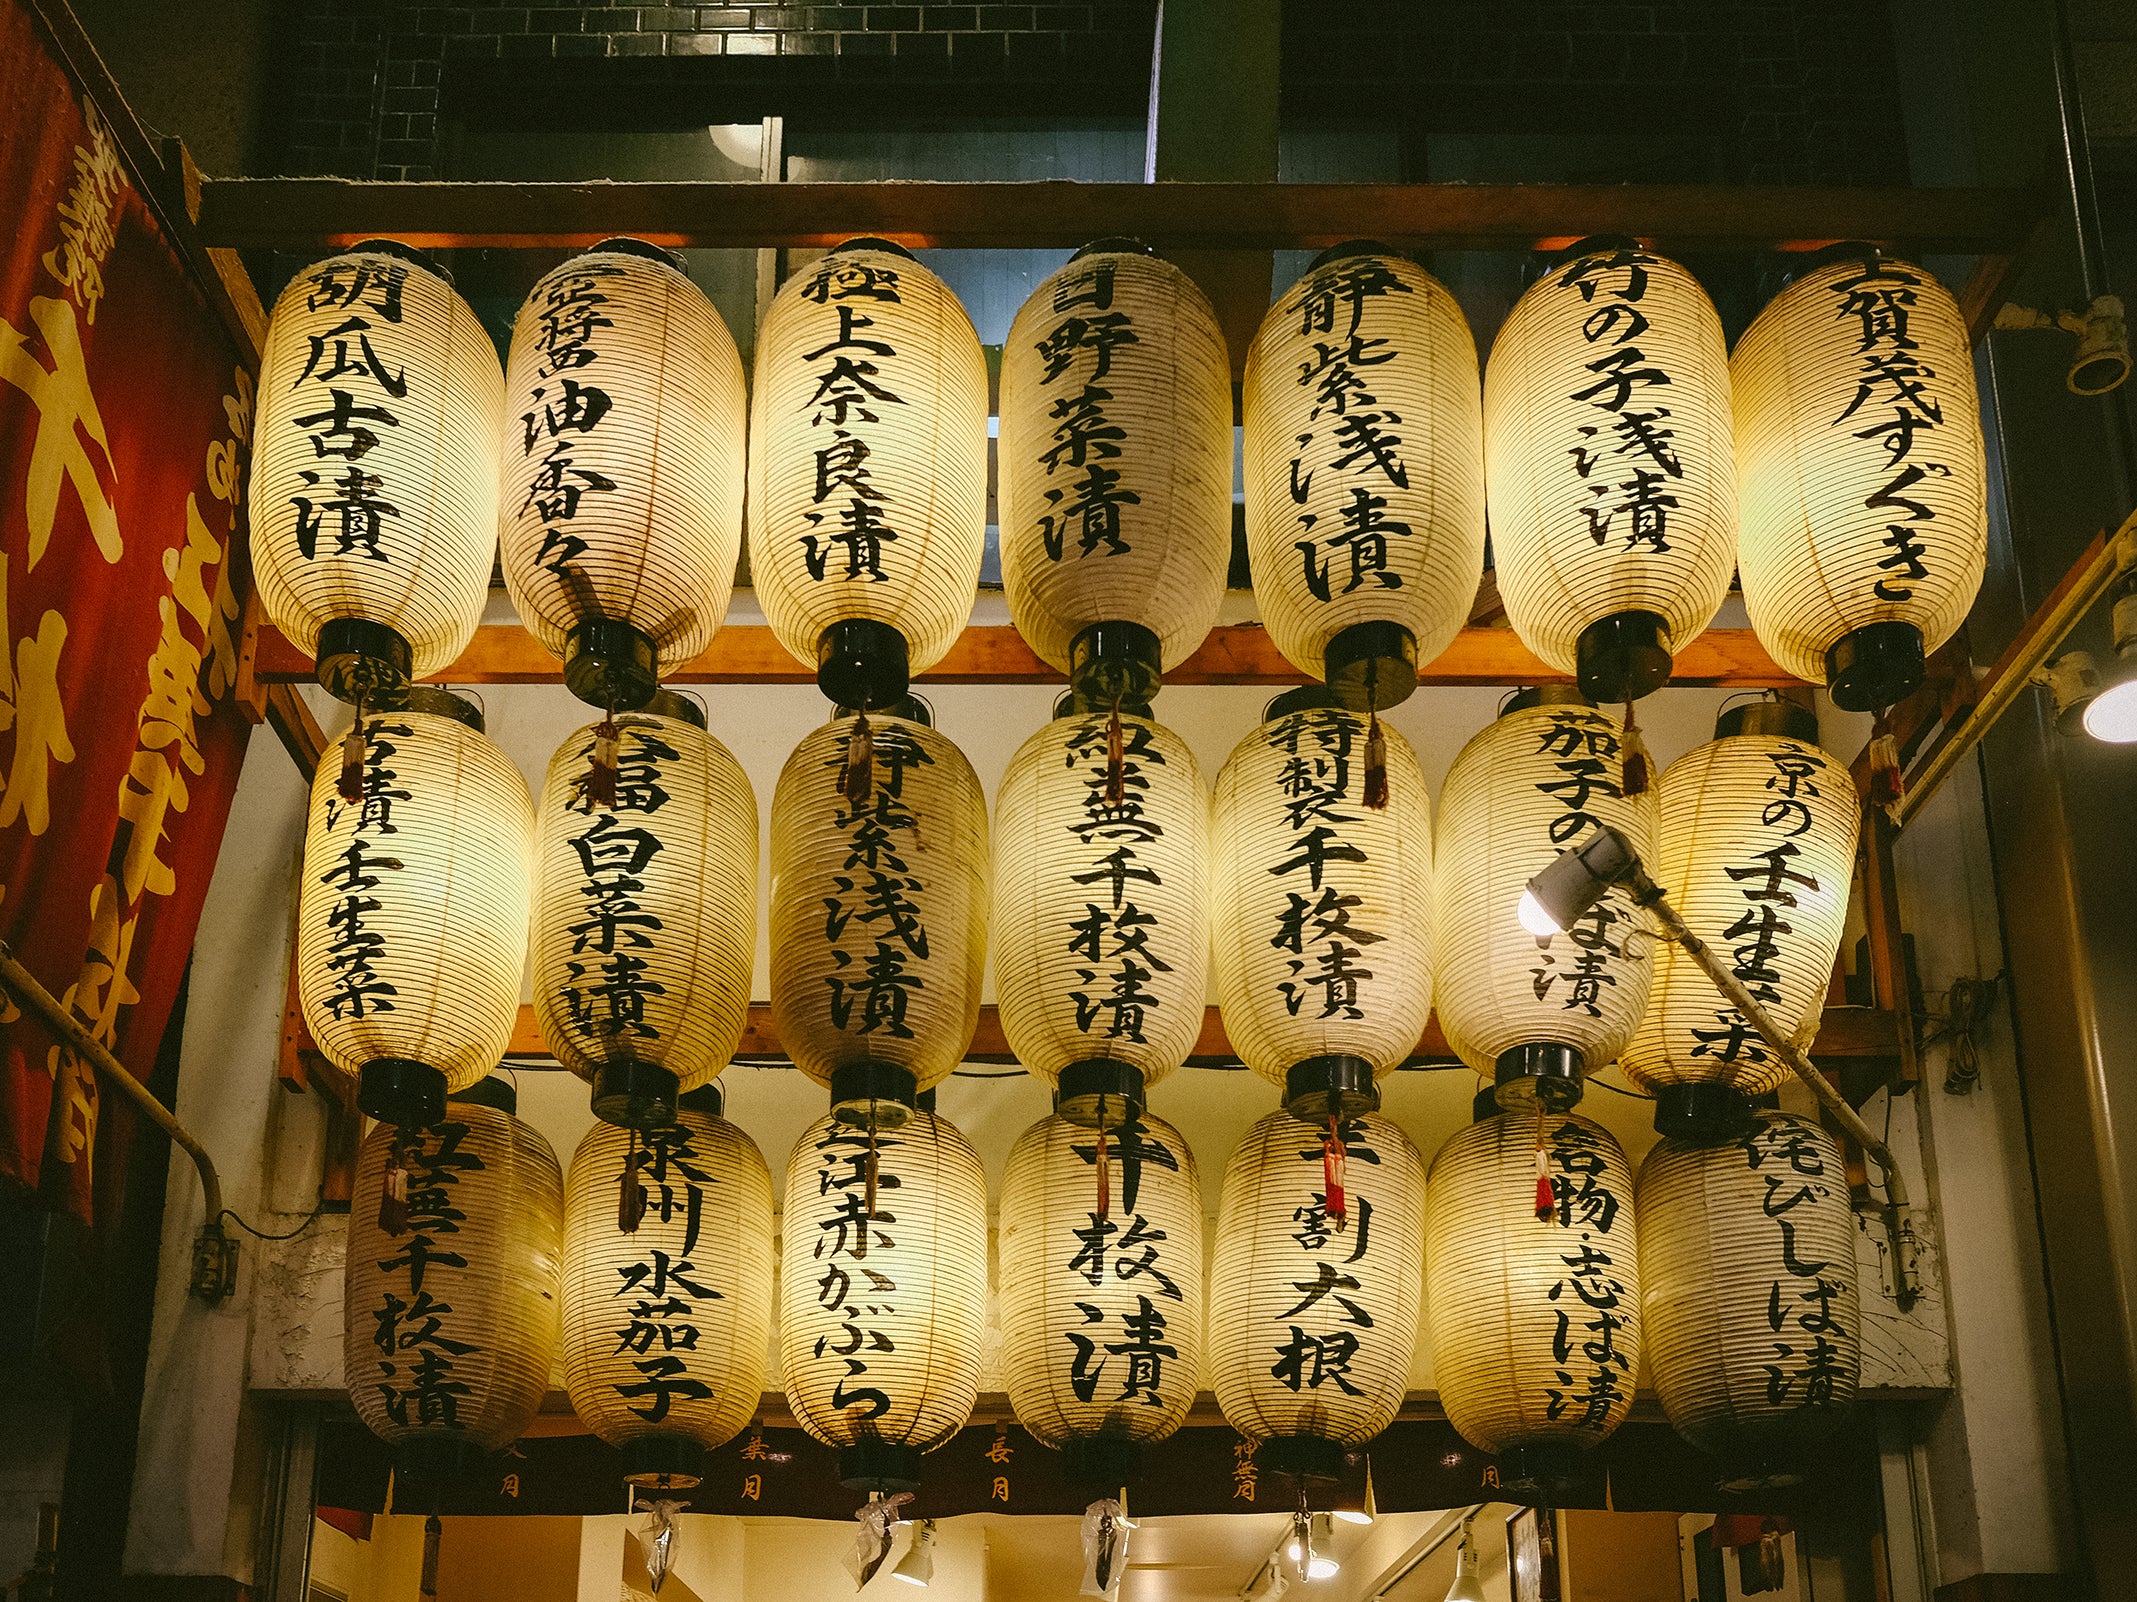 胡瓜古漬
壺醤油香々
極上奈良漬
日野菜漬
静紫浅漬
竹の子浅漬
上賀茂すぐき
古漬壬生菜
福白菜漬
静紫浅漬
紅蕪千枚漬
特製千枚漬
茄子の
ば漬
京の壬生菜
紅蕪千枚漬
泉州水茄子
近江赤かぶら
千枚漬
割大根
名物・志ば漬
侘びしば漬
月
葉月
長月
神無月
月